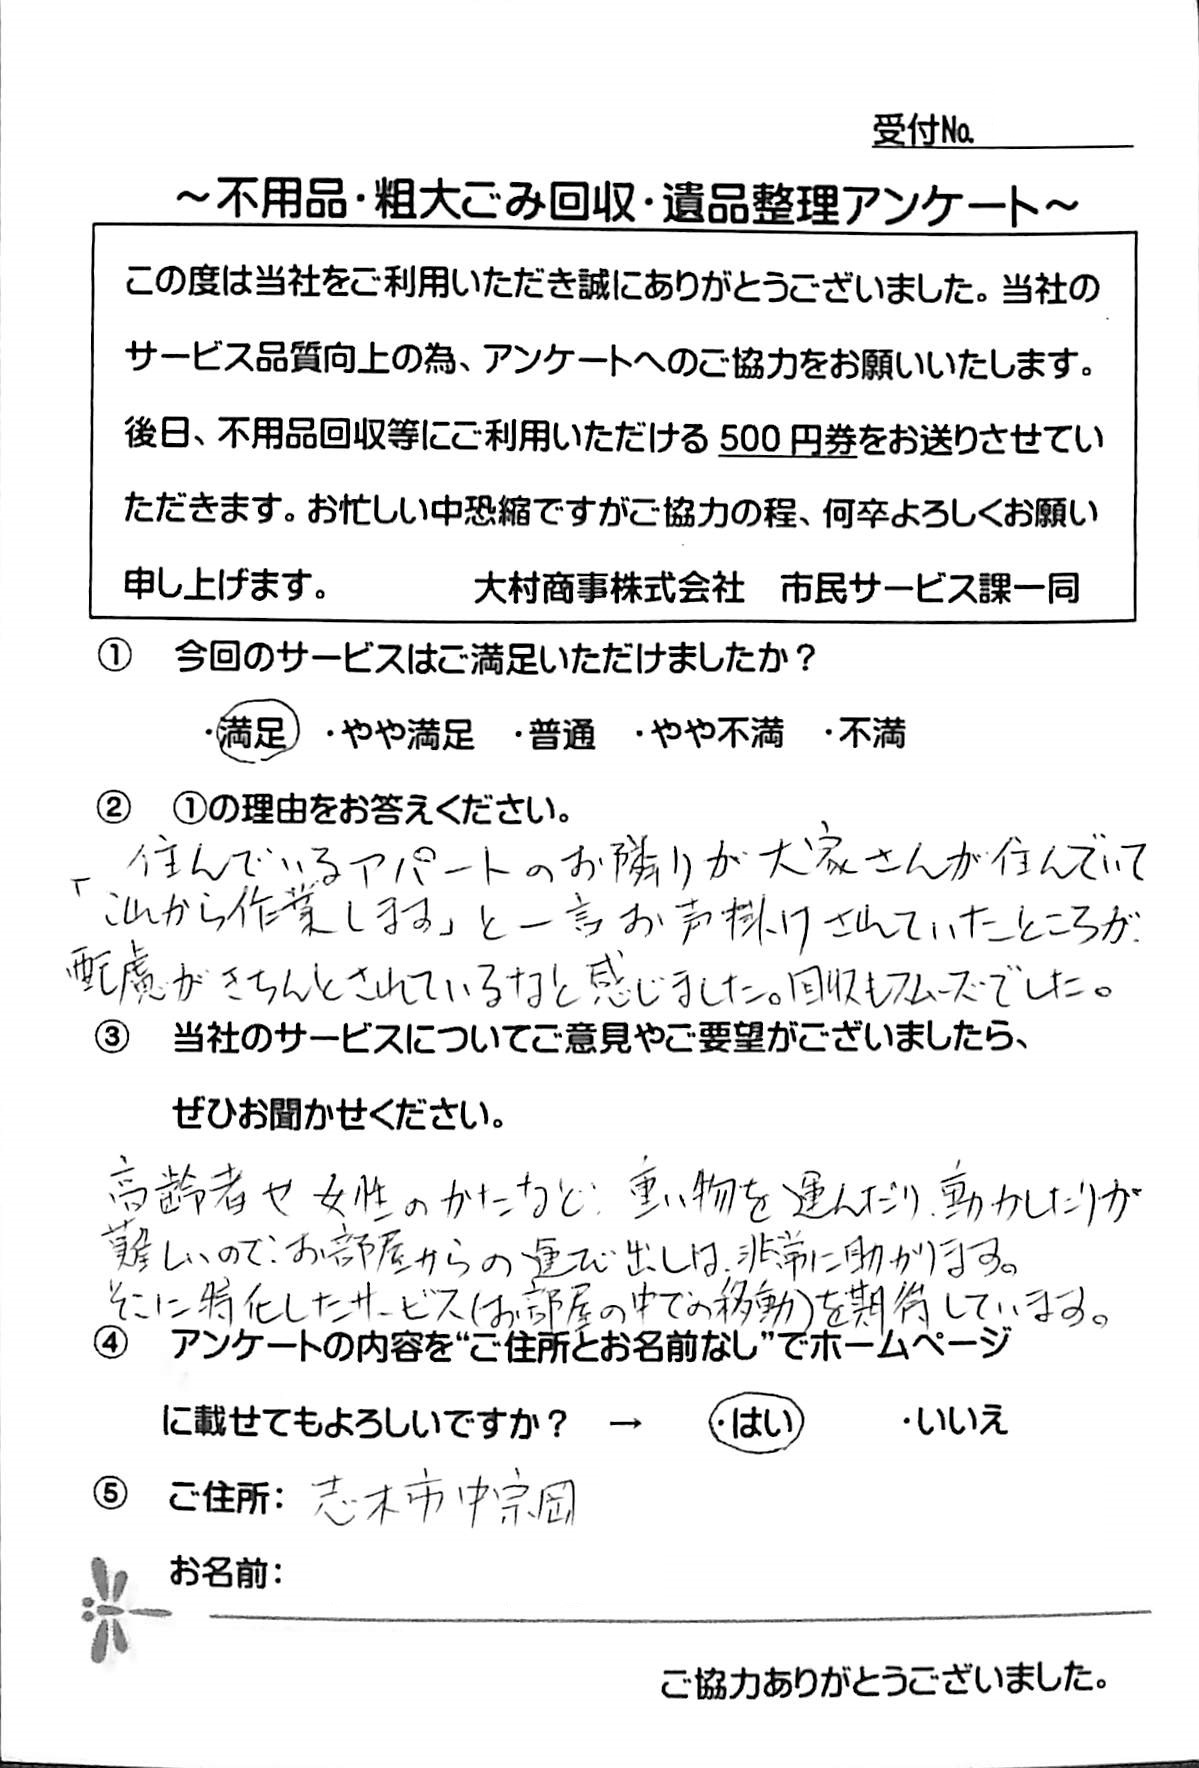 受付No.
～不用品・粗大ごみ回収・遺品整理アンケート～
この度は当社をご利用いただき誠にありがとうございました。当社の
サービス品質向上の為、アンケートへのご協力をお願いいたします。
後日、不用品回収等にご利用いただける500円券をお送りさせてい
ただきます。お忙しい中恐縮ですがご協力の程、何卒よろしくお願い
申し上げます。 大村商事株式会社 市民サービス課一同
① 今回のサービスはご満足いただけましたか？
・満足 ・やや満足 ・普通 ・やや不満 ・不満
② ①の理由をお答えください。
住んでいるアパートのお隣りが大家さんが住んでいて
「これから作業します」と一言お声掛けされていたところが、
配慮がきちんとされているなと感じました。回収もスムーズでした。
③ 当社のサービスについてご意見やご要望がございましたら、
ぜひお聞かせください。
高齢者や女性のかたなど、重い物を運んだり、動かしたりが
難しいので、お部屋からの運び出しは、非常に助かります。
そこに特化したサービス(お部屋の中での移動)を期待しています。
④ アンケートの内容を“ご住所とお名前なし”でホームページ
に載せてもよろしいですか？ → ・はい ・いいえ
⑤ ご住所：志木市中宗岡
お名前：
ご協力ありがとうございました。